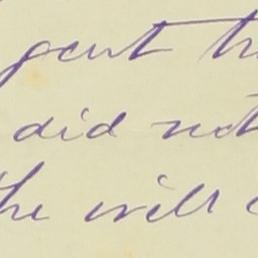 gent tr
did not
the will